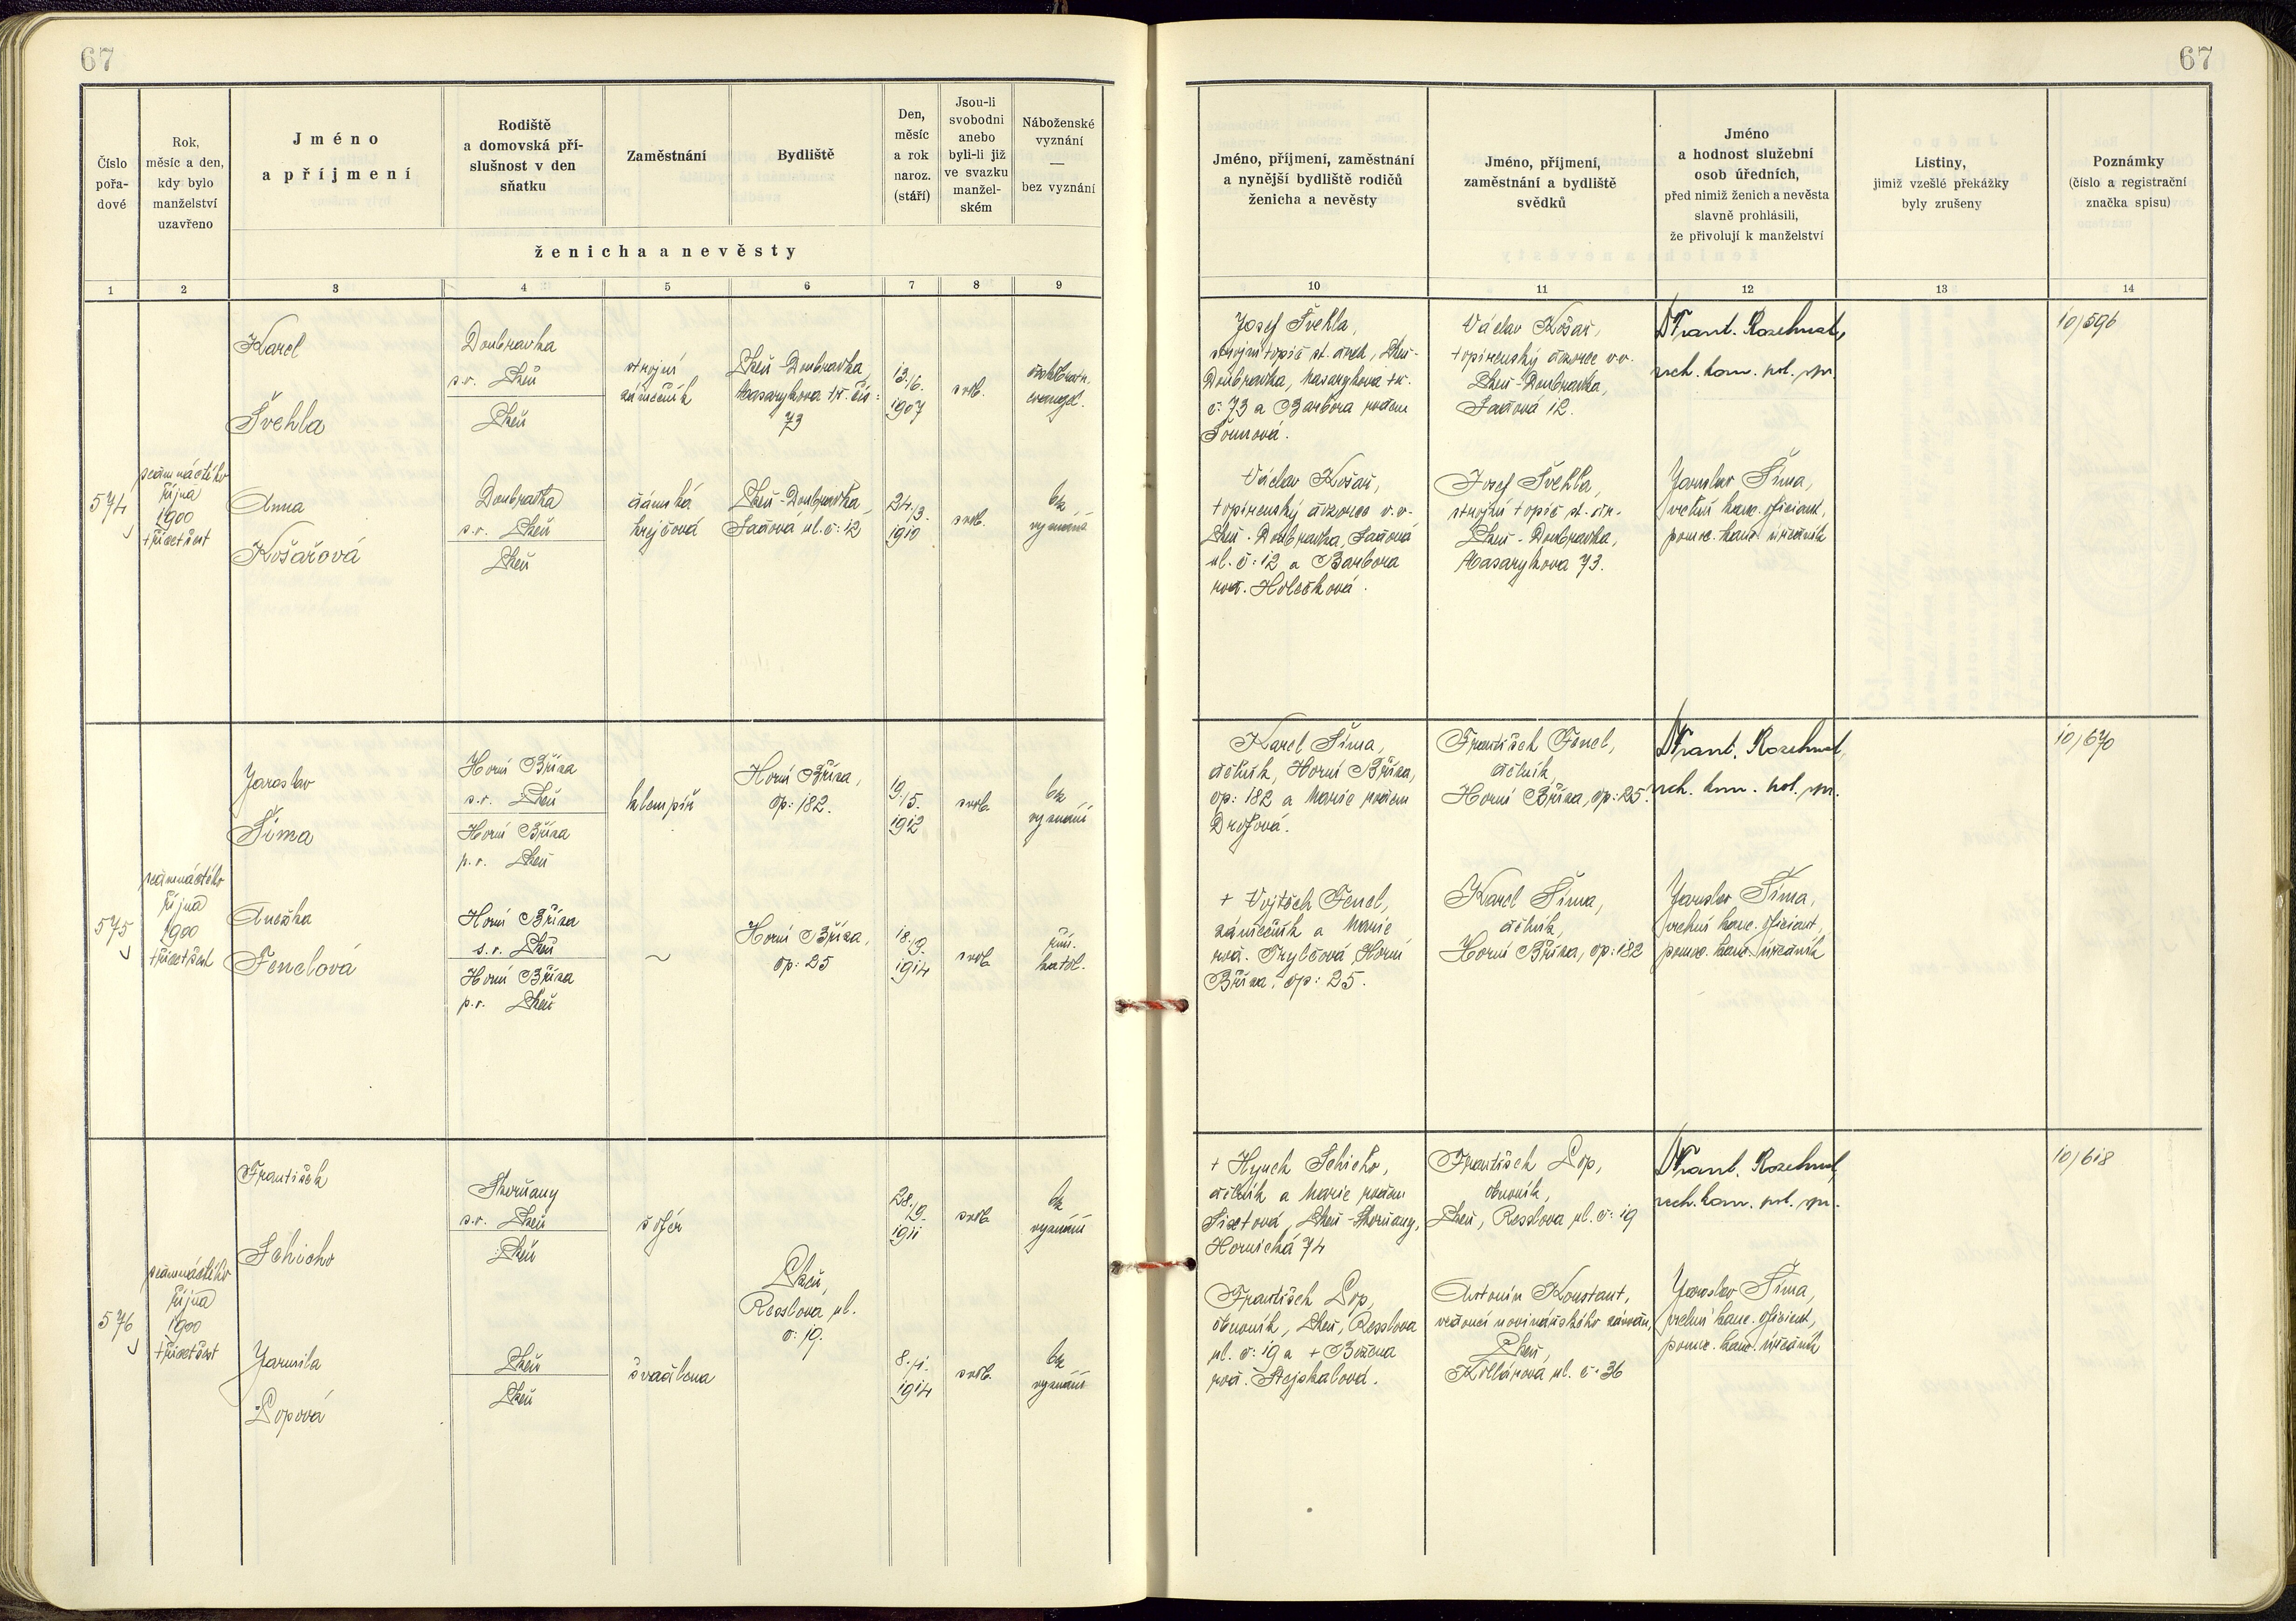 67
67
Číslo pořa- dové
Rok, měsíc a den, kdy bylo manželství uzavřeno
Jméno a příjmení
Rodiště a domovská pří- slušnost v den sňatku
Zaměstnání
Bydliště
Den, měsíc a rok naroz. (stáří)
Jsou-li svobodni anebo byli-li již ve svazku manžel- ském
Náboženské vyznání — bez vyznání
ženicha a nevěsty
Jméno, příjmení, zaměstnání a nynější bydliště rodičů ženicha a nevěsty
Jméno, příjmení, zaměstnání a bydliště svědků
Jméno a hodnost služební osob úředních, před nimiž ženich a nevěsta slavně prohlásili, že přivolují k manželství
Listiny, jimiž vzešlé překážky byly zrušeny
Poznámky (číslo a registrační značka spisu)
1 2 3 4 5 6 7 8 9 10 11 12 13 14
574
října
1900
třicetšest
Karel
Švehla
Doubravka
s.o. Plzeň
Plzeň
strojní
zámečník
Plzeň-Doubravka,
Masarykova tř. čís:
73
13./6.
1907
svob.
českobratr.
evangel.
Anna
Košařová
Doubravka
s.o. Plzeň
Plzeň
dámská
krejčová
Plzeň-Doubravka,
Sadová ul. č: 12
24./3.
1910
svob.
bez
vyznání
Josef Švehla,
strojní topič st. drah, Plzeň-
Doubravka, Masarykova tř.
č: 73 a Barbora rodem
Václav Košař,
topírenský dozorce v.v.
Plzeň-Doubravka,
Sadová 12.
Frant. Rozehnal,
vrch. kom. pol. spr.
10/596
Václav Košař,
topírenský dozorce v.v.
Plzeň-Doubravka, Sadová
ul. č: 12 a Barbora
rod. Holečková.
Josef Švehla,
strojní topič st. dr.
Plzeň-Doubravka,
Masarykova 73.
Jaroslav Šíma,
vrchní kanc. oficiant,
pomoc. kanc. úředník
575
října
1900
třicetšest
Jaroslav
Šíma
Horní Bříza
s.o. Plzeň
Horní Bříza
p.o. Plzeň
klempíř
Horní Bříza,
čp: 182.
19./5.
1912
svob.
bez
vyznání
Anežka
Fenclová
Horní Bříza
s.o. Plzeň
Horní Bříza
p.o. Plzeň
~
Horní Bříza,
čp: 25
18./9.
1914
svob.
řím.
katol.
Karel Šíma,
dělník, Horní Bříza,
čp: 182 a Marie rodem
František Fencl,
dělník,
Horní Bříza, čp: 25.
Frant. Rozehnal,
vrch. kom. pol. spr.
10/670
+ Vojtěch Fencl,
zámečník a Marie
rod. Horní
Bříza, čp: 25.
Karel Šíma,
dělník,
Horní Bříza, čp: 182
Jaroslav Šíma,
vrchní kanc. oficiant,
pomoc. kanc. úředník
576
října
1900
třicetšest
František
Schicho
Skvrňany
s.o. Plzeň
Plzeň
šofér
28./9.
1911
svob.
bez
vyznání
Plzeň,
Resslova ul.
č: 19.
Jarmila
Popová
Plzeň
Plzeň
švadlena
8./1.
1914
svob.
bez
vyznání
+ Hynek Schicho,
dělník a Marie rodem
Sixtová, Plzeň-Skvrňany,
Hornická 74
František Pop,
obuvník,
Plzeň, Resslova ul. č: 19
Frant. Rozehnal,
vrch. kom. pol. spr.
10/618
František Pop,
obuvník, Plzeň, Resslova
ul. č: 19 a + Božena
rod. Stejskalová.
Antonín Konstant,
vedoucí novinářského závodu,
Plzeň,
Kollárova ul. č. 36
Jaroslav Šíma,
vrchní kanc. oficiant,
pomoc. kanc. úředník